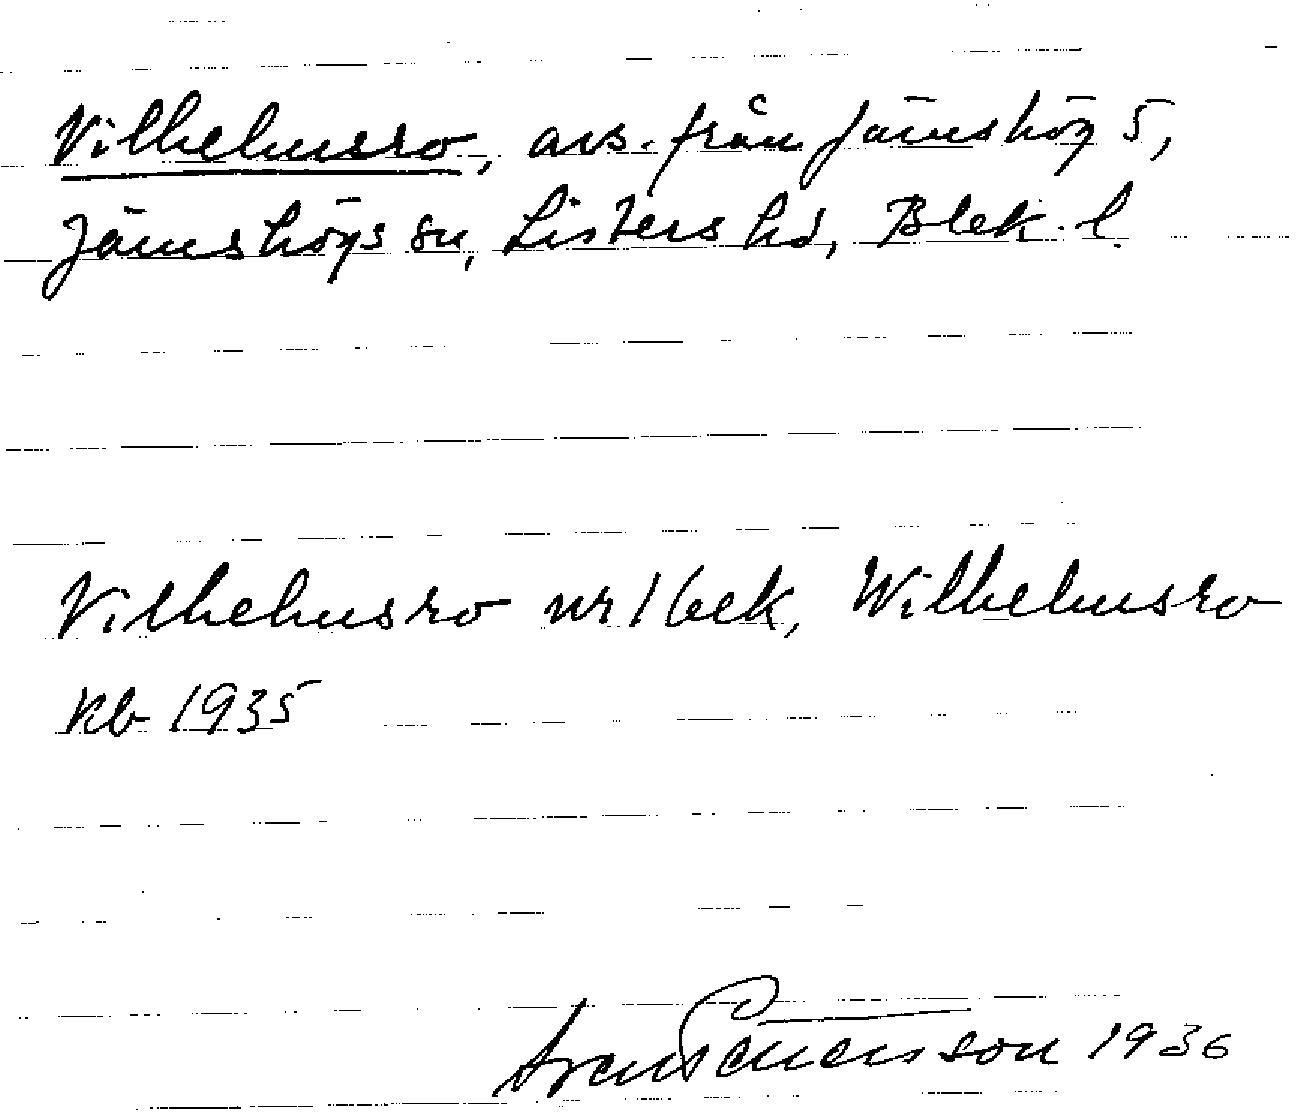 Vilhelmsro, avs. från Jämshög 5,
Jämshögs sn, Listers hd, Blek. l.
Vilhelmsro nr 1 bek, Wilhelmsro
kb 1935
Sven Benson 1936